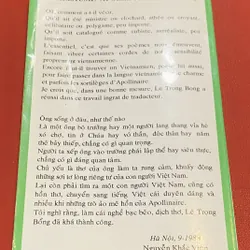 Qu'il soit ministre ou clochard, athée ou croyant,
célibataire ou polygame, peu importe.
Qu'il soit catalogué comme cubiste, surréaliste, peu
importe.
L'essentiel, c'est que ses poèmes nous
faisant vibrer certaines cordes de notre sensibilité
propre au vietnamienne.
Encore à se trouver un Vietnamien, poète lui aussi,
pour faire passer dans la langue vietnamienne
parfums et les artifices d'Apollinaire.
C'est mon humble avis, Lê Trọng Bổng a
réussi dans ce travail ingrat de traducteur.
Ông sống ở đâu, như thế nào
Là một ông bộ trưởng hay một người lang thang vỉa hè
xó chợ, tin ở Chúa hay vô thần, độc thân hay năm
thê bảy thiếp, chẳng có gì quan trọng.
Người ta xếp ông vào trường phái lập thể hay siêu thực,
chẳng có gì đáng quan tâm.
Chủ yếu là thơ của ông làm ta rung cảm, khuấy động
những sợi tơ lòng riêng tư của con người Việt Nam.
Lại còn phải tìm ra một con người Việt Nam, cũng có
hồn thơ, chuyển sang tiếng Việt cái duyên dáng và
nhiều khi những trò ảo mê hồn của Apollinaire.
Tôi nghĩ rằng, làm cái nghề bạc bẽo, dịch thơ, Lê Trọng
Bổng đã khá thành công.
Hà Nội, 9-198
Nguyễn Khắc Viện